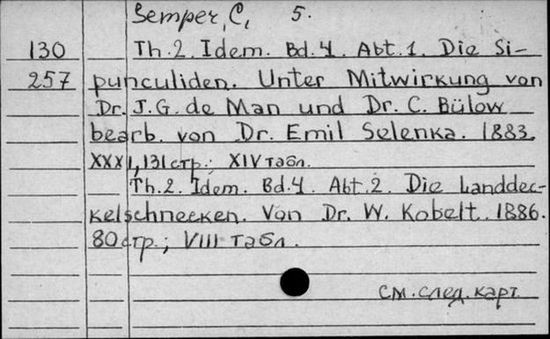 Semper, C, 5.
130 Th. 2. Idem. Bd. 4. Abt. 1. Die Si-
257 punculiden. Unter Mitwirkung von
Dr. J. G. de Man und Dr. C. Bülow
bearb. von Dr. Emil Selenka. 1883.
XXXI, 131 стр.; XIV табл.
Th. 2. Idem. Bd. 4. Abt. 2. Die Landdec-
kelschnecken. Von Dr. W. Kobelt. 1886.
80 стр.; VIII табл.
См. след. карт